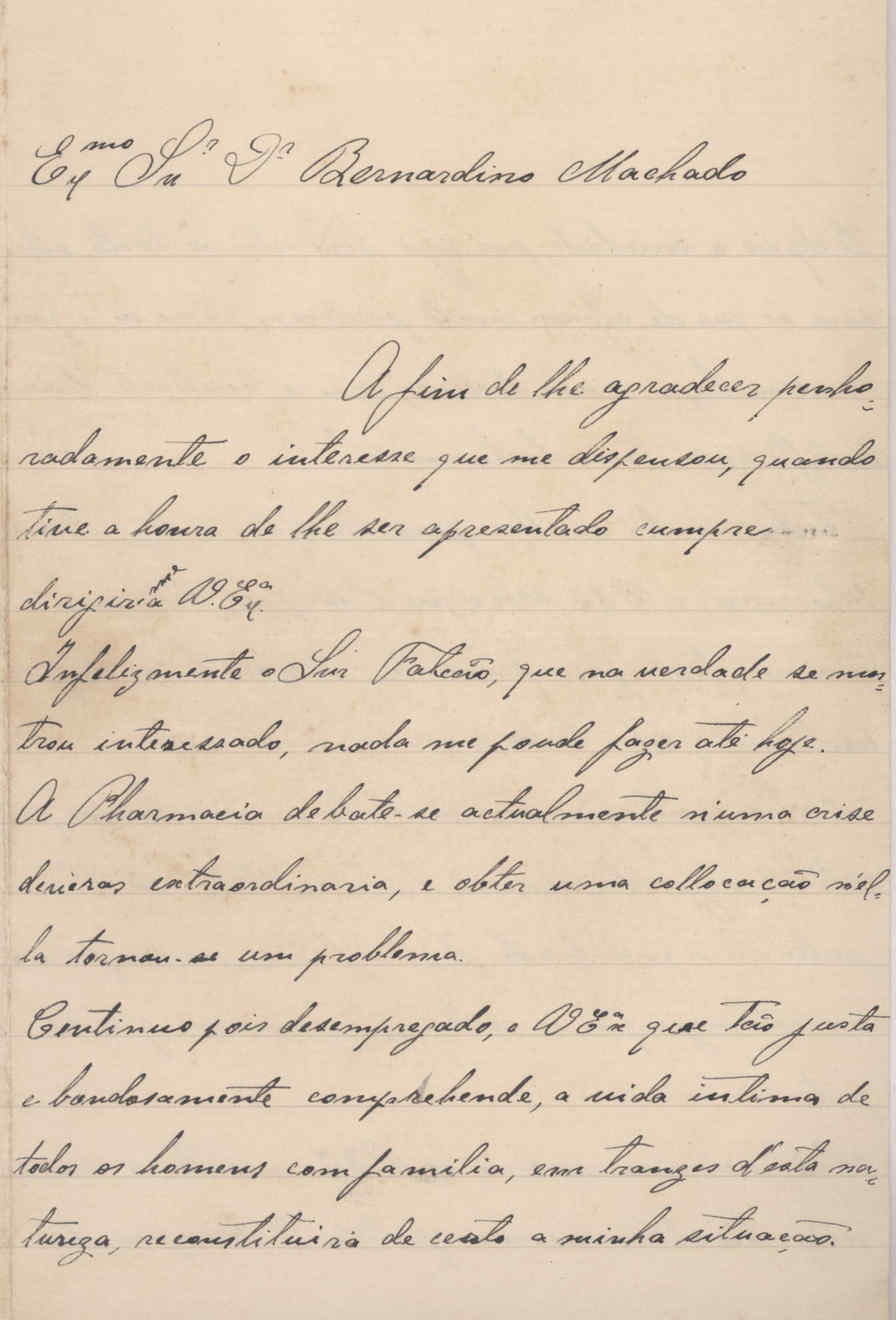 Exmo Snr Dr Bernardino Machado
A fim de lhe agradecer penho=
radamente o interesse que me dispensou, quando
tive a honra de lhe ser apresentado cumpre
dirigir-me a V. Exa.
Infelizmente o Snr Falcão, que na verdade se mos=
trou interessado, nada me poude fazer até hoje.
A Pharmacia debate-se actualmente n'uma crise
deveras extraordinaria, e obter uma collocação n'el=
la tornou-se um problema.
Continuo pois desempregado, e V Exa que tão justa
e bondosamente comprehende, a vida intima de
todos os homens com familia, em tranzes d'esta na=
tureza, reconstituirá de certo a minha situação.